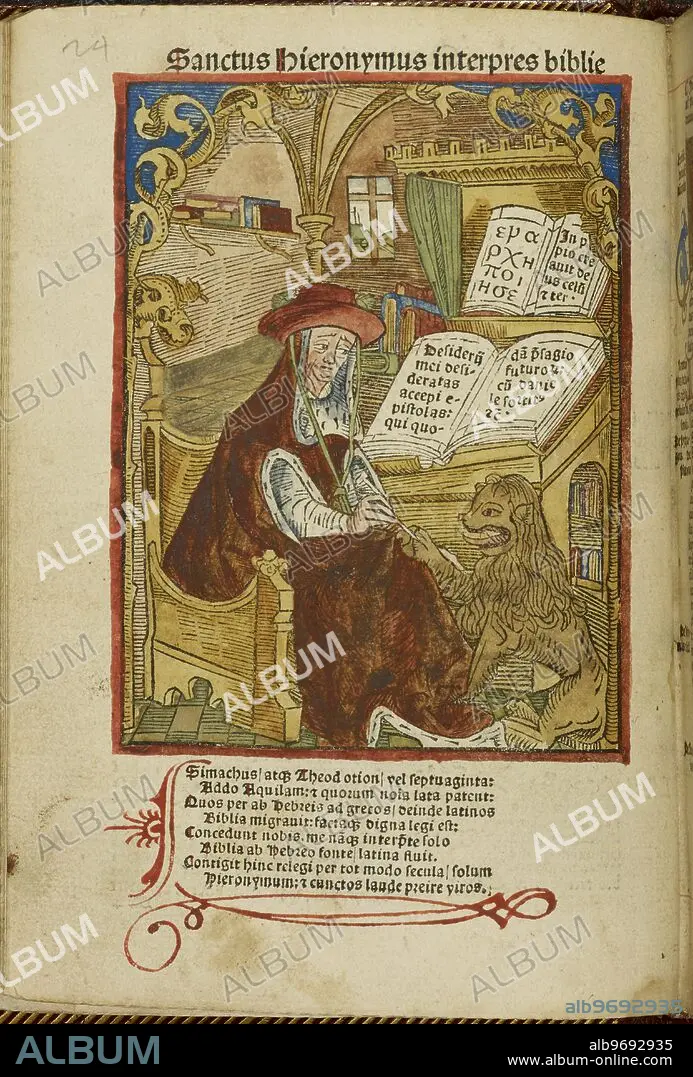 24
Sanctus Hieronymus interpres biblie
ερα
ρχη
ποί
ησε
In p
pio cre
avit de
us celũ
⁊ ter.
Desiderij
mei desi-
deratas
accepi e-
pistolas:
qui quo-
dã p̃sagio
futuroꝝ
cũ danie
le
Simachus/ atqꝫ Theodotion/ vel septuaginta:
Addo Aquilam: ⁊ quorum nota lata patent:
Quos per ab Hebreis ad grecos/ deinde latinos
Biblia migravit: factaqꝫ digna legi est:
Concedunt nobis. me nãqꝫ interp̃te solo
Biblia ab Hebreo fonte/ latina fluit.
Contigit hinc relegi per tot modo secula/ solum
Hieronymum: ⁊ cunctos laude preire viros.
ALBUM
alb9692935
ALBUM
alb9692935
www.album-online.com